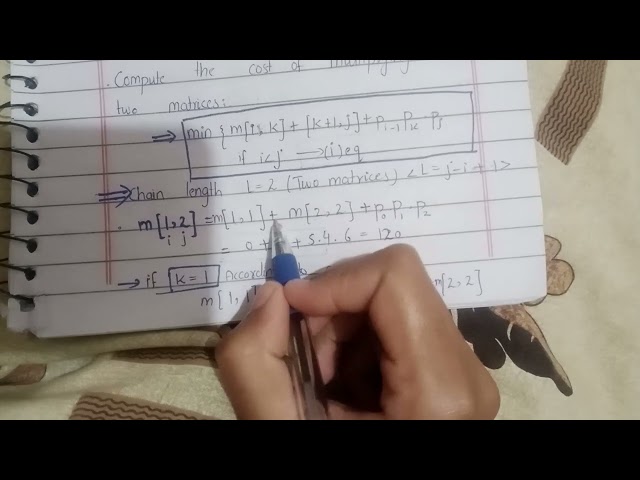 . Compute the cost of multiplying
two matrices:
⇒ min { m[i, k] + [k+1, j] + Pi-1 Pk . Pj
if i<j ⟶ (i) eq
⇒ Chain length L = 2 (Two matrices) <L = j - i + 1>
. m[1,2] = m[1,1] + m[2,2] + P0 P1 . P2
i j = 0 + + 5.4.6 = 120
→ if k = 1
m[1, 1 m[2,2]